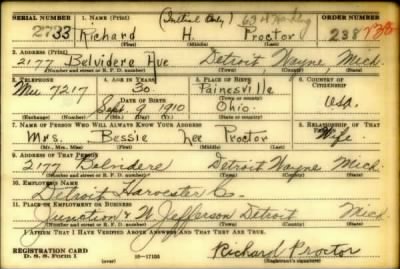 SERIAL NUMBER 1. NAME (Print) (Initial Only) ORDER NUMBER
2733 Richard H. Proctor 238
(First) (Middle) (Last)
2. ADDRESS (Print)
2177 Belvidere Ave Detroit, Wayne, Mich.
(Number and street or R. F. D. number) (Town) (County) (State)
3. TELEPHONE 4. AGE IN YEARS 5. PLACE OF BIRTH 6. COUNTRY OF CITIZENSHIP
Mu 7217 30 Painesville
(Town or county)
DATE OF BIRTH
Sept 9 1910 Ohio. USA.
(Exchange) (Number) (Mo.) (Day) (Yr.) (State or country)
7. NAME OF PERSON WHO WILL ALWAYS KNOW YOUR ADDRESS 8. RELATIONSHIP OF THAT PERSON
Mrs. Bessie Lee Proctor Wife
(Mr., Mrs., Miss) (First) (Middle) (Last)
9. ADDRESS OF THAT PERSON
2177 Belvidere Detroit Wayne Mich.
(Number and street or R. F. D. number) (Town) (County) (State)
10. EMPLOYER'S NAME
Detroit Harvester Co.
11. PLACE OF EMPLOYMENT OR BUSINESS
Junction & W. Jefferson Detroit Mich
(Number and street or R. F. D. number) (Town) (County) (State)
I AFFIRM THAT I HAVE VERIFIED ABOVE ANSWERS AND THAT THEY ARE TRUE.
REGISTRATION CARD
D. S. S. Form 1 (over) 16—17105 Richard Proctor
(Registrant's signature)